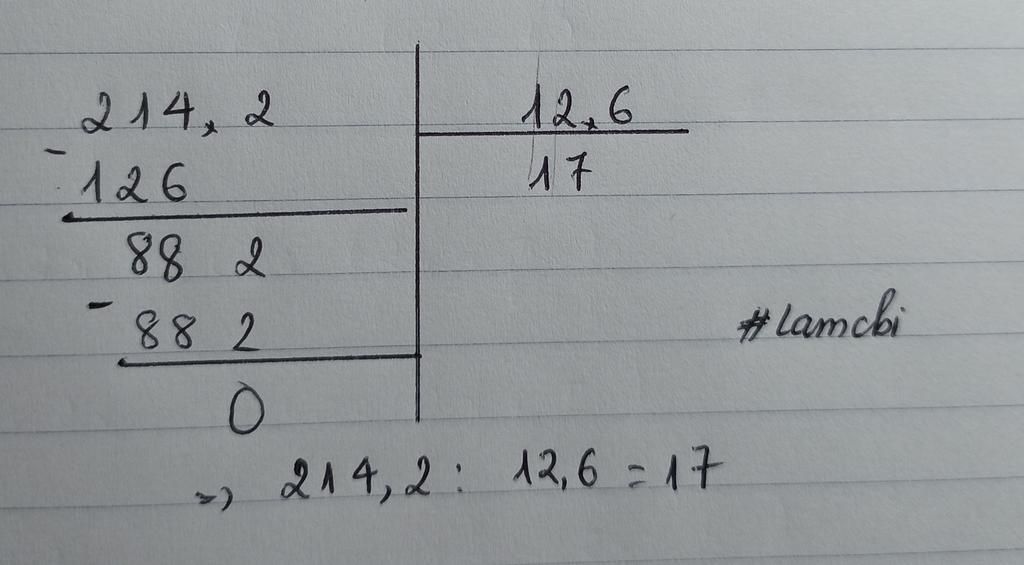 214, 2 12,6
- 126 17
88 2
- 88 2 #lamchi
0
=> 214,2 : 12,6 = 17